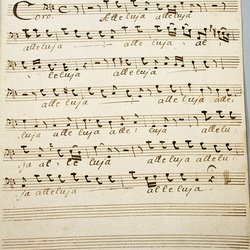 Coro. Alleluja alleluja
alleluja alleluja, al=
leluja alleluja
alleluja alleluja alle=
luja alleluja alleluja allelu=
ja alleluja alleluja allelu=
ja alleluja alleluja.